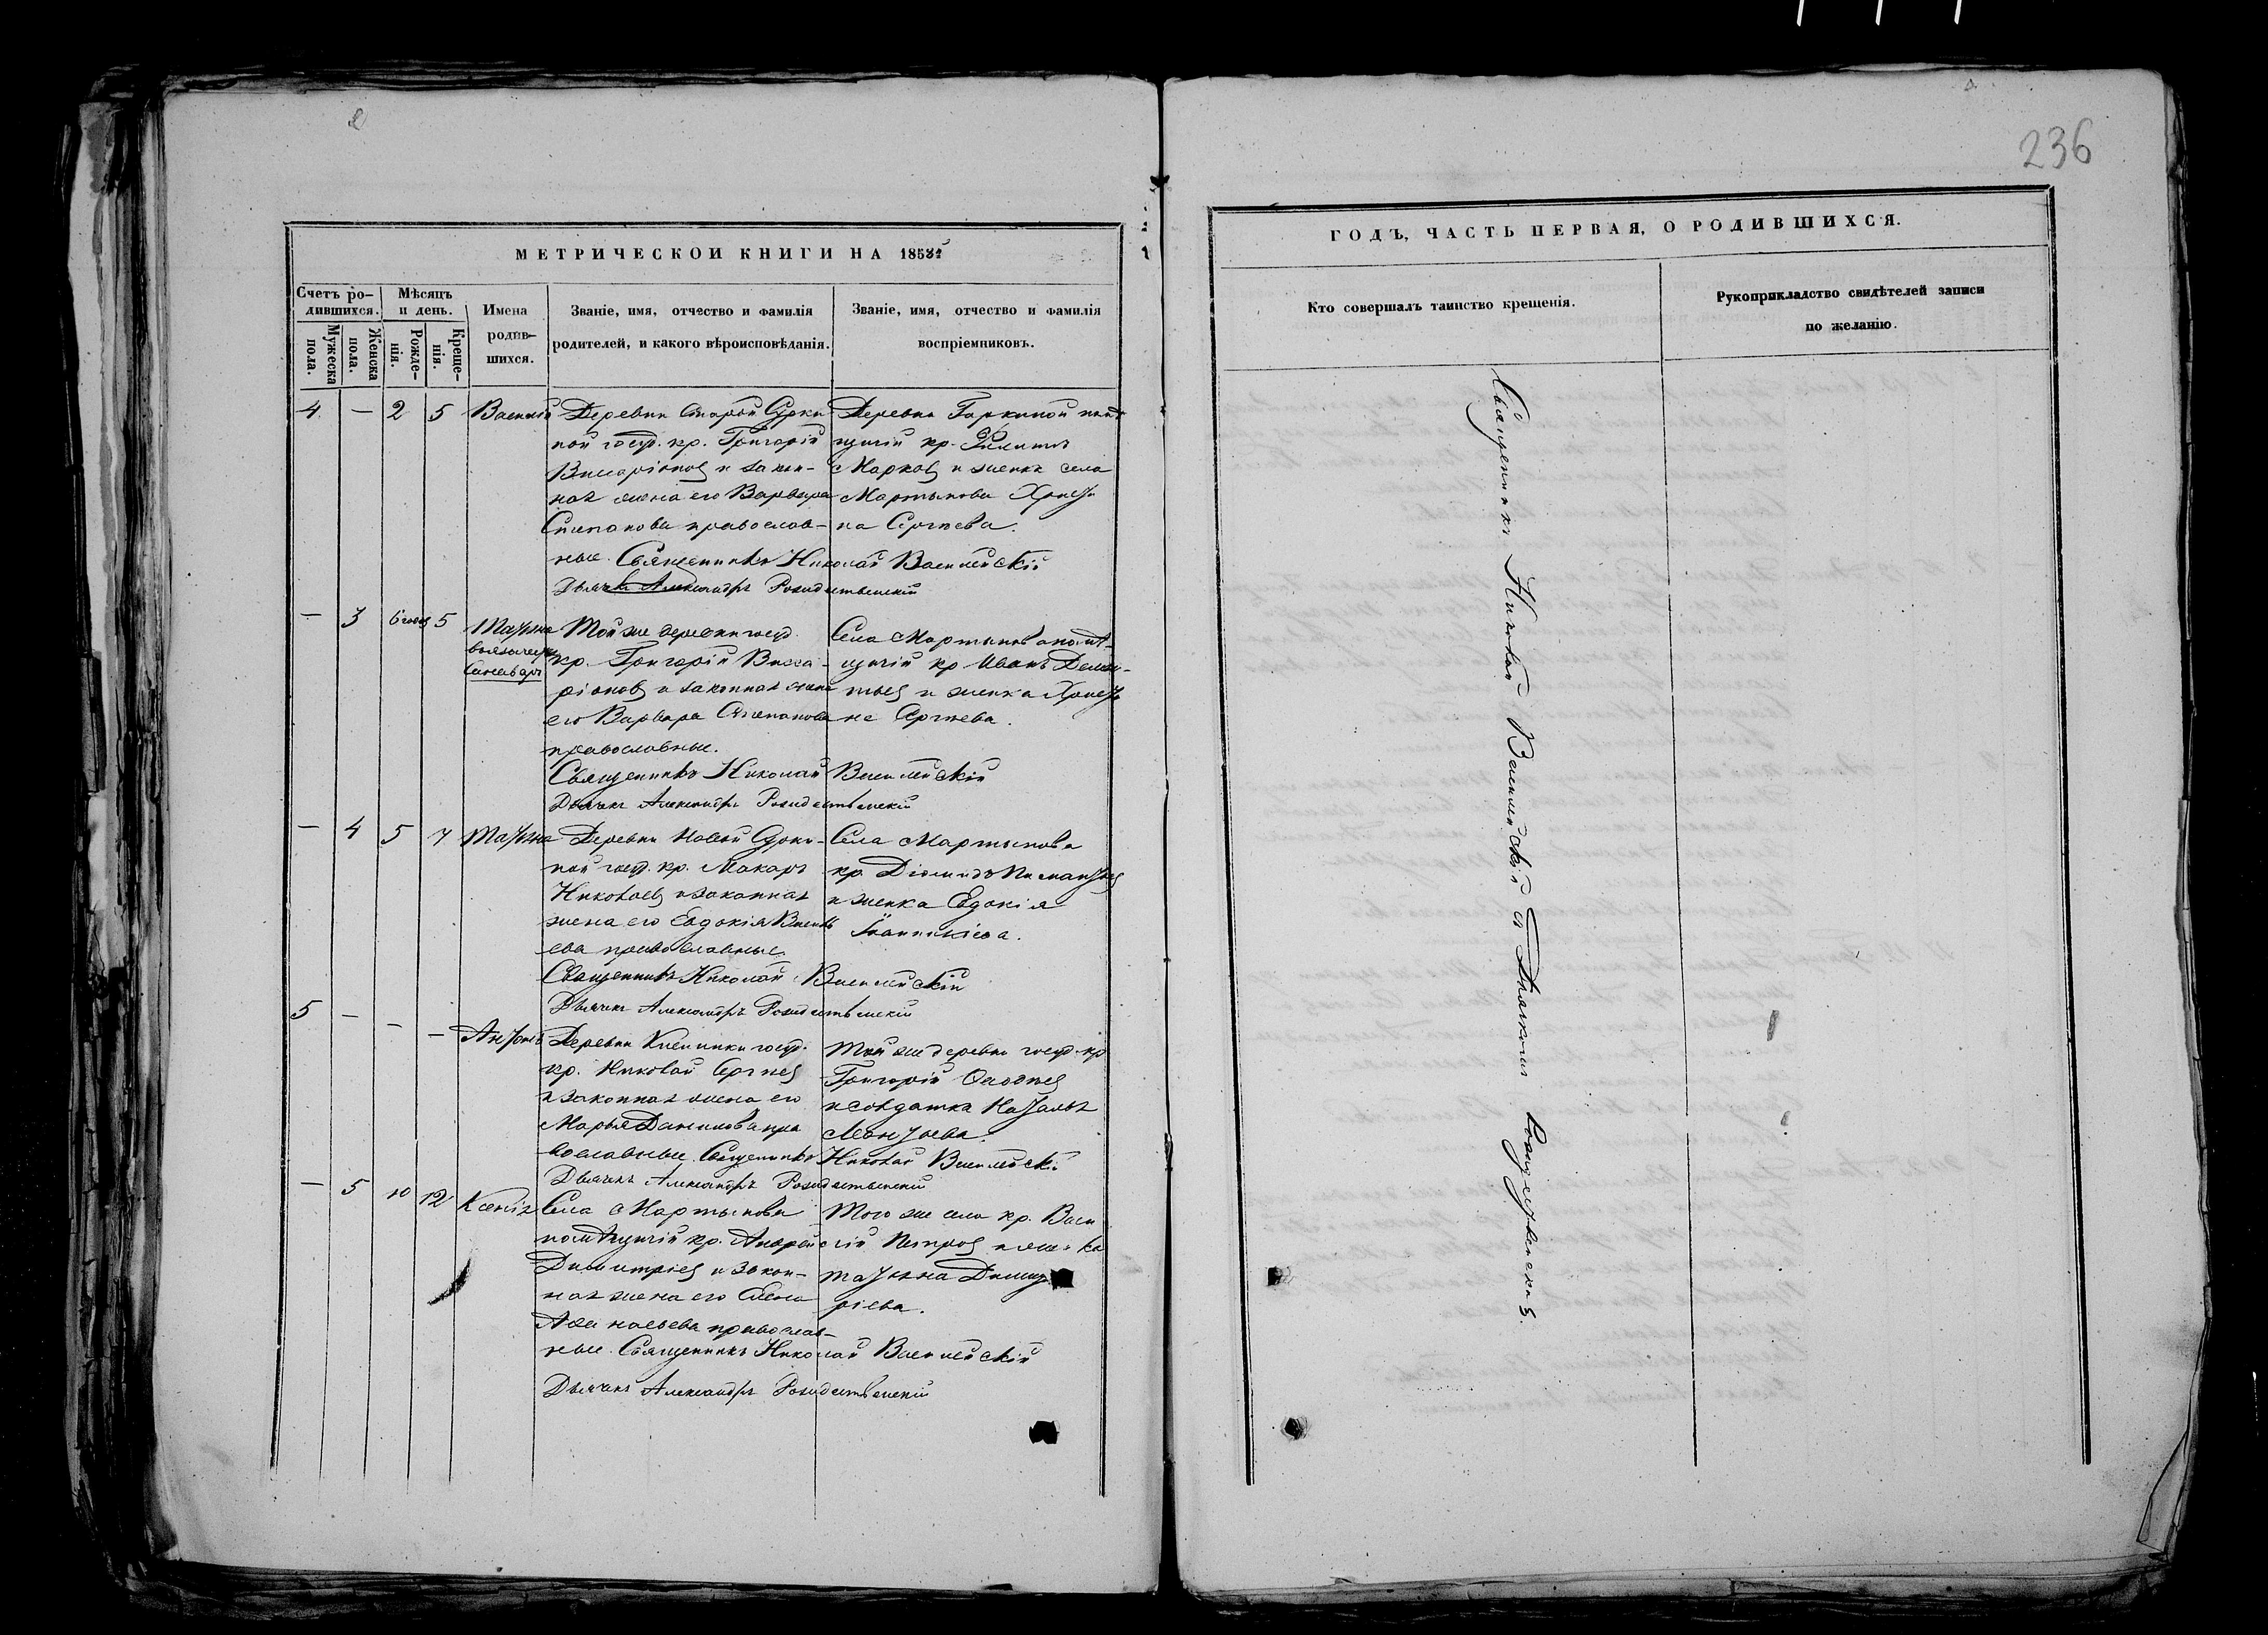 236
МЕТРИЧЕСКОЙ КНИГИ НА 185
Счетъ ро-
дившихся.
Мужеска
пола.
Женска
пола.
Мѣсяцъ
и день.
Рожде-
нія.
Креще-
нія.
Имена
родив-
шихся.
Званіе, имя, отчество и фамилія
родителей, и какого вѣроисповѣданія.
Званіе, имя, отчество и фамилія
воспріемниковъ.
4. — 2 5 Василій
Деревни Старой Сурки-
ной госуд. кр. Григорій
Висаріоновъ и закон-
ная жена его Варвара
Степанова православ-
ные. Священникъ Николай Василейскій
Дьячекъ Александръ Рождественскій
Деревни помѣ-
щичій кр. Филиппъ
Марковъ и женка села
Мартынова Христи-
на Сергѣева.
— 3 6 годовъ 5 Татьяна
Той же деревни госуд.
кр. Григорій Висса-
ріоновъ и законная жена
его Варвара Степанова
православные.
Священникъ Николай Василейскій
Дьячекъ Александръ Рождественскій
Села Мартынова помѣ-
щичій кр. Иванъ Демен-
тьевъ и женка Христи-
на Сергѣева.
— 4 5 7 Татьяна
Деревни Новой Сурки-
ной госуд. кр. Макаръ
Николаевъ и законная
жена его Евдокія
ева православные.
Священникъ Николай Василейскій
Дьячекъ Александръ Рождественскій
Села Мартынова
кр. Діомидъ
и женка Евдокія
Іоанникіева.
5 — — — Антонъ
Деревни госуд.
кр. Николай Сергѣевъ
и законная жена его
Марья Данилова пра-
вославные. Священникъ Николай Василейскій
Дьячекъ Александръ Рождественскій
Той же деревни госуд. кр.
Григорій
и солдатка Наталья
Леонтьева.
— 5 10 12 Ксенія
Села Мартынова
помѣщичій кр. Андрей
Димитріевъ и закон-
ная жена его Елена
православ-
ные. Священникъ Николай Василейскій
Дьячекъ Александръ Рождественскій
Того же села кр. Васи-
лій Петровъ и женка
Татьяна Димит
ріева.
ГОДЪ, ЧАСТЬ ПЕРВАЯ, О РОДИВШИХСЯ.
Кто совершалъ таинство крещенія.
Рукоприкладство свидѣтелей записи
по желанію.
Священникъ Николай Василейскій съ Дьячкомъ Рождественскимъ.